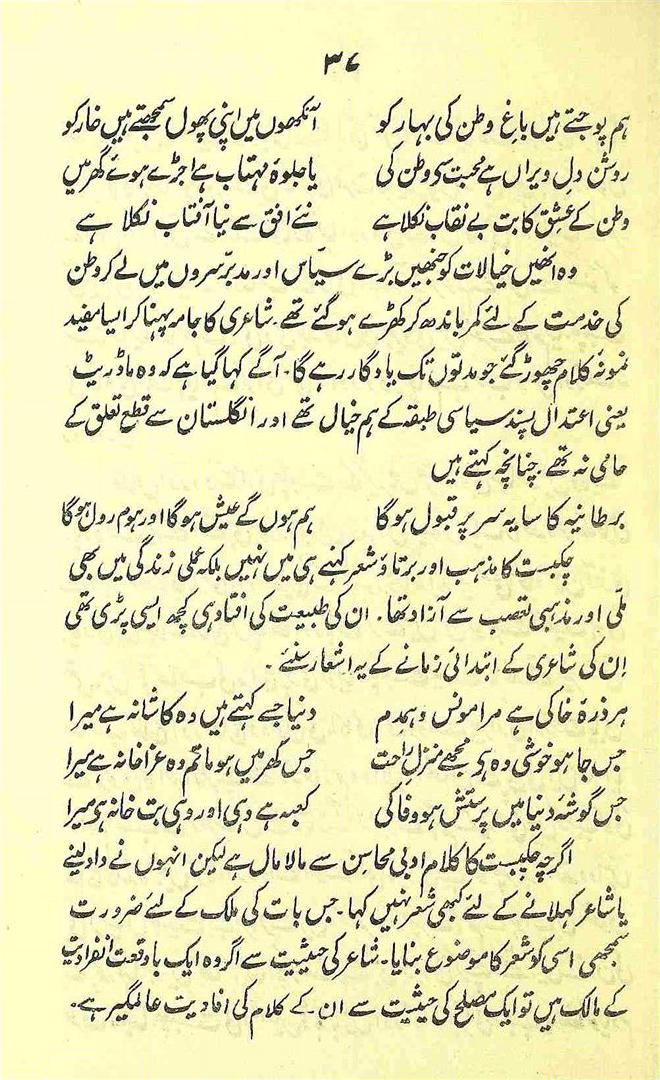 ۳۷
ہم پوجتے ہیں باغِ وطن کی بہار کو آنکھوں میں اپنی پھول سمجھتے ہیں خار کو
روشن دلِ ویراں ہے محبت سے وطن کی یا جلوۂ مہتاب ہے اجڑے ہوئے گھر میں
وطن کے عشق کا بت بے نقاب نکلا ہے نئے افق سے نیا آفتاب نکلا ہے
وہ انھیں خیالات کو جنھیں بڑے سیّاس اور مدبّر سروں میں لے کر وطن
کی خدمت کے لئے کمر باندھ کر کھڑے ہو گئے تھے۔ شاعری کا جامہ پہنا کر ایسا مفید
نمونۂ کلام چھوڑ گئے جو مدتوں تک یادگار رہے گا۔ آگے کہا گیا ہے کہ وہ ماڈریٹ
یعنی اعتدال پسند سیاسی طبقہ کے ہم خیال تھے اور انگلستان سے قطعِ تعلق کے
حامی نہ تھے۔ چنانچہ کہتے ہیں
برطانیہ کا سایہ سر پر قبول ہوگا ہم ہوں گے عیش ہوگا اور ہوم رول ہوگا
چکبست کا مذہب اور برتاؤ شعر کہنے ہی میں نہیں بلکہ عملی زندگی میں بھی
ملّی اور مذہبی تعصب سے آزاد تھا۔ ان کی طبیعت کی افتاد ہی کچھ ایسی پڑی تھی
اِن کی شاعری کے ابتدائی زمانے کے یہ اشعار سنئے۔
ہر ذرۂ خاکی ہے مرا مونس و ہمدم دنیا جسے کہتے ہیں وہ کاشانہ ہے میرا
جس جا ہو خوشی وہ ہے مجھے منزلِ راحت جس گھر میں ہو ماتم وہ عزا خانہ ہے میرا
جس گوشۂ دنیا میں پرستش ہو وفا کی کعبہ ہے وہی اور وہی بت خانہ ہے میرا
اگرچہ چکبست کا کلام ادبی محاسن سے مالا مال ہے لیکن انہوں نے داد لینے
یا شاعر کہلانے کے لئے کبھی شعر نہیں کہا۔ جس بات کی ملک کے لئے ضرورت
سمجھی اسی کو شعر کا موضوع بنایا۔ شاعر کی حیثیت سے اگر وہ ایک باوقعت انفرادیت
کے مالک ہیں تو ایک مصلح کی حیثیت سے ان کے کلام کی افادیت عالمگیر ہے۔